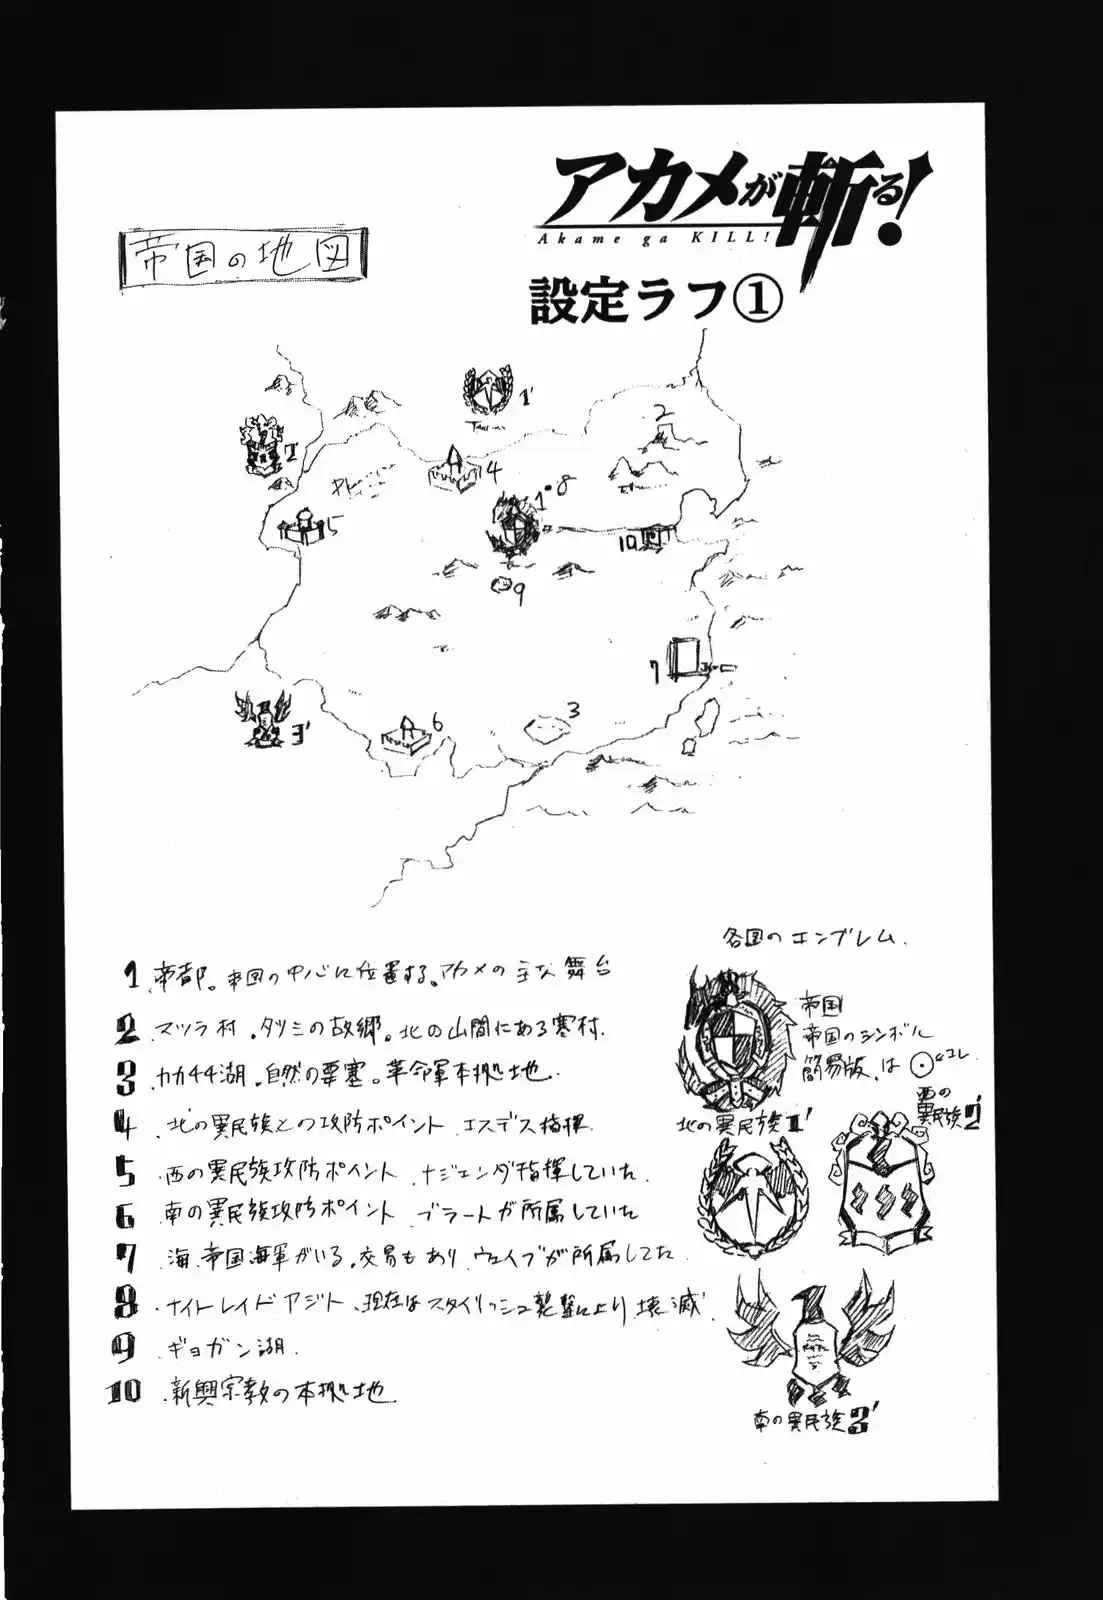 アカメが斬る!
Akame ga KILL!
帝国の地図
設定ラフ①
1'
2
2'
4
1
8
5
10
9
7
3
6
3'
1 帝都。帝国の中心に位置する。アカメの主な舞台
2 マツラ村。タツミの故郷。北の山間にある寒村.
3 カカ44湖。自然の要塞。革命軍本拠地.
4 北の異民族との攻防ポイント エスデス指揮.
5 西の異民族攻防ポイント ナジェンダ指揮していた.
6 南の異民族攻防ポイント ブラートが所属していた
7 海.帝国海軍がいる。交易もあり ウェイブが所属してた.
8 ナイトレイドアジト.現在はスタイリッシュ襲撃により壊滅.
9 ギョガン湖.
10 新興宗教の本拠地.
各国のエンブレム.
帝国
帝国のシンボル
簡易版.は ⊙←コレ.
北の異民族1'
西の
異民族2'
南の異民族3'